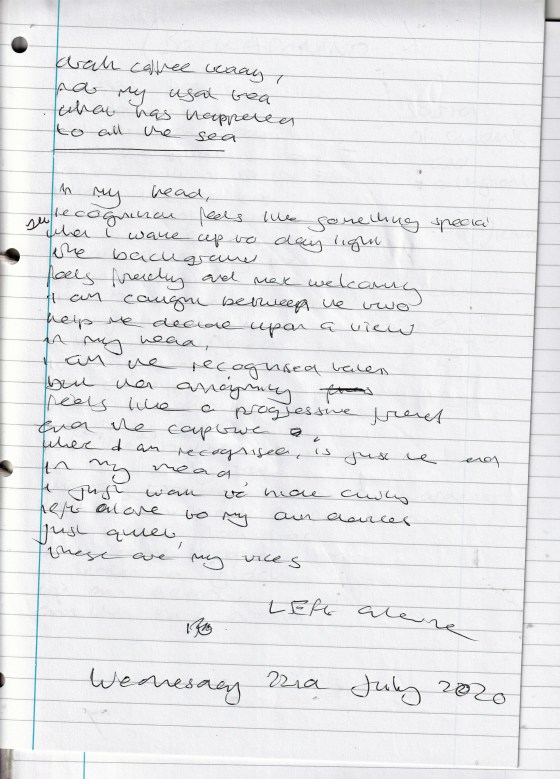 drank coffee today,
not my usual tea
what has happened
to all the sea
in my head,
recognition feels like something special
when I wake up to day light
the background
feels friendly and welcoming
I am caught between the two
help me decide upon a view
in my head,
I am the recognised talent
but then anonymity
feels like a progressive friend
and the capture
when I am recognised, is just the end
in my head
I just want to move away
left alone to my own devices
just quiet,
these are my vices
LEFt alone
Wednesday 22nd July 2020